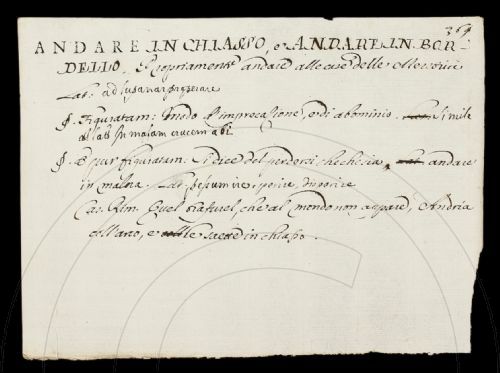 369
ANDARE IN CHIASSO, e ANDARE IN BOR-
DELLO. Propriamente andare alle case delle Meretrici
Lat. ad lupanar
§. Figuratam: modo d'imprecazione, e di abominio. Simile
al lat. In malam crucem abi
§. E pur figuratam. Si dice del perdersi checchesia, andare
in malora. Lat. perire,
Cas. Rim. Quel che al mondo non appare, Andria
e in chiasso.